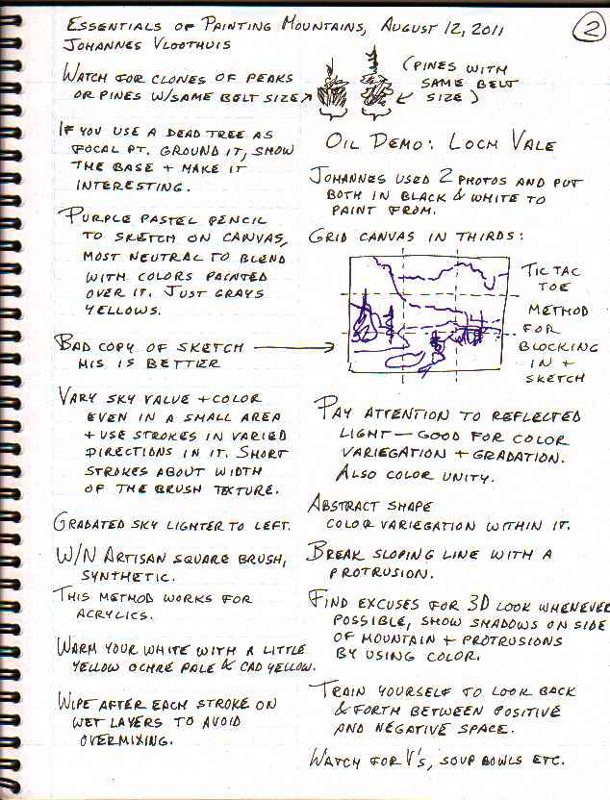 Essentials of Painting Mountains, August 12, 2011
Johannes Vloothuis
2
Watch for clones of peaks
or pines w/same belt size
(Pines with
same belt
size)
If you use a dead tree as
focal pt. ground it, show
the base + make it
interesting.
Purple pastel pencil
to sketch on canvas,
most neutral to blend
with colors painted
over it. Just grays
yellows.
Bad copy of sketch
his is better
Vary sky value + color
even in a small area
+ use strokes in varied
directions in it. Short
strokes about width
of the brush texture.
Gradated sky lighter to left.
W/N Artisan square brush,
synthetic.
This method works for
acrylics.
Warm your white with a little
yellow ochre pale & cad yellow.
Wipe after each stroke on
wet layers to avoid
overmixing.
Oil Demo: Loch Vale
Johannes used 2 photos and put
both in black & white to
paint from.
Grid canvas in thirds:
Tic tac
toe
method
for
blocking
in +
sketch
Pay attention to reflected
light — good for color
variegation + gradation.
Also color unity.
Abstract shape
color variegation within it.
Break sloping line with a
protrusion.
Find excuses for 3D look whenever
possible, show shadows on side
of mountain + protrusions
by using color.
Train yourself to look back
& forth between positive
and negative space.
Watch for V's, soup bowls etc.